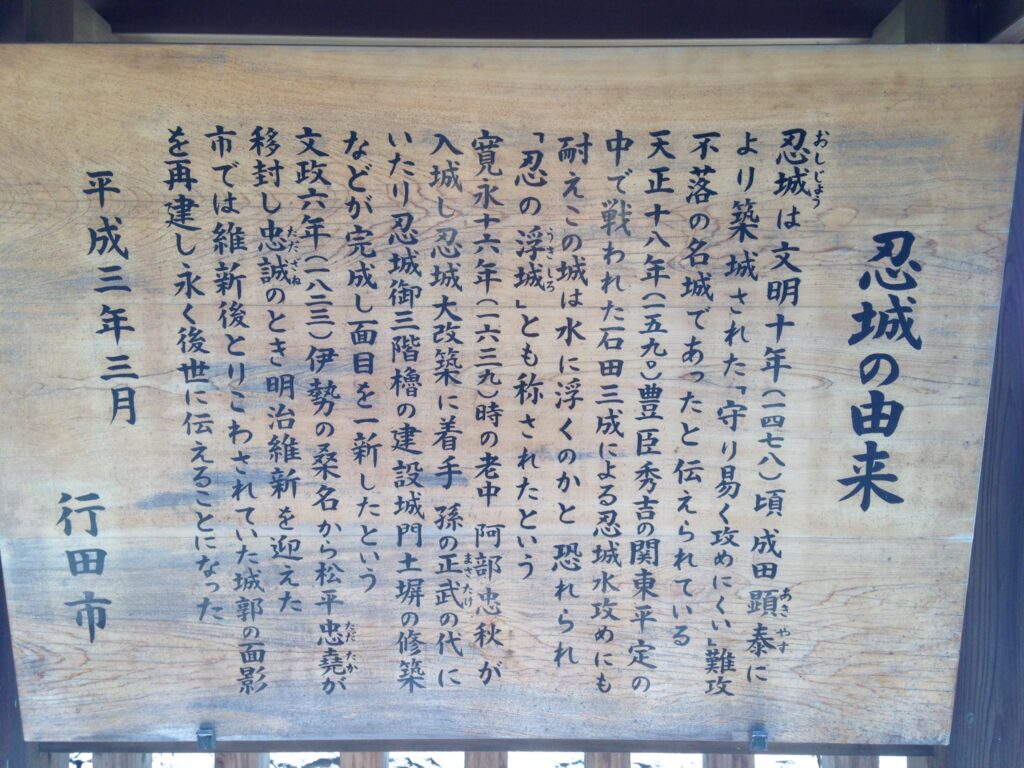 忍城の由来
忍城は文明十年(一四七八)頃、成田顕泰に
より築城された「守り易く攻めにくい」難攻
不落の名城であったと伝えられている
天正十八年(一五九〇)豊臣秀吉の関東平定の
中で戦われた石田三成による忍城水攻めにも
耐えこの城は水に浮くのかと恐れられ
「忍の浮城」とも称されたという
寛永十六年(一六三九)時の老中 阿部忠秋が
入城し忍城大改築に着手 孫の正武の代に
いたり忍城御三階櫓の建設城門土塀の修築
などが完成し面目を一新したという
文政六年(一八二三)伊勢の桑名から松平忠堯が
移封し忠誠のとき明治維新を迎えた
市では維新後とりこわされていた城郭の面影
を再建し永く後世に伝えることになった
平成三年三月 行田市